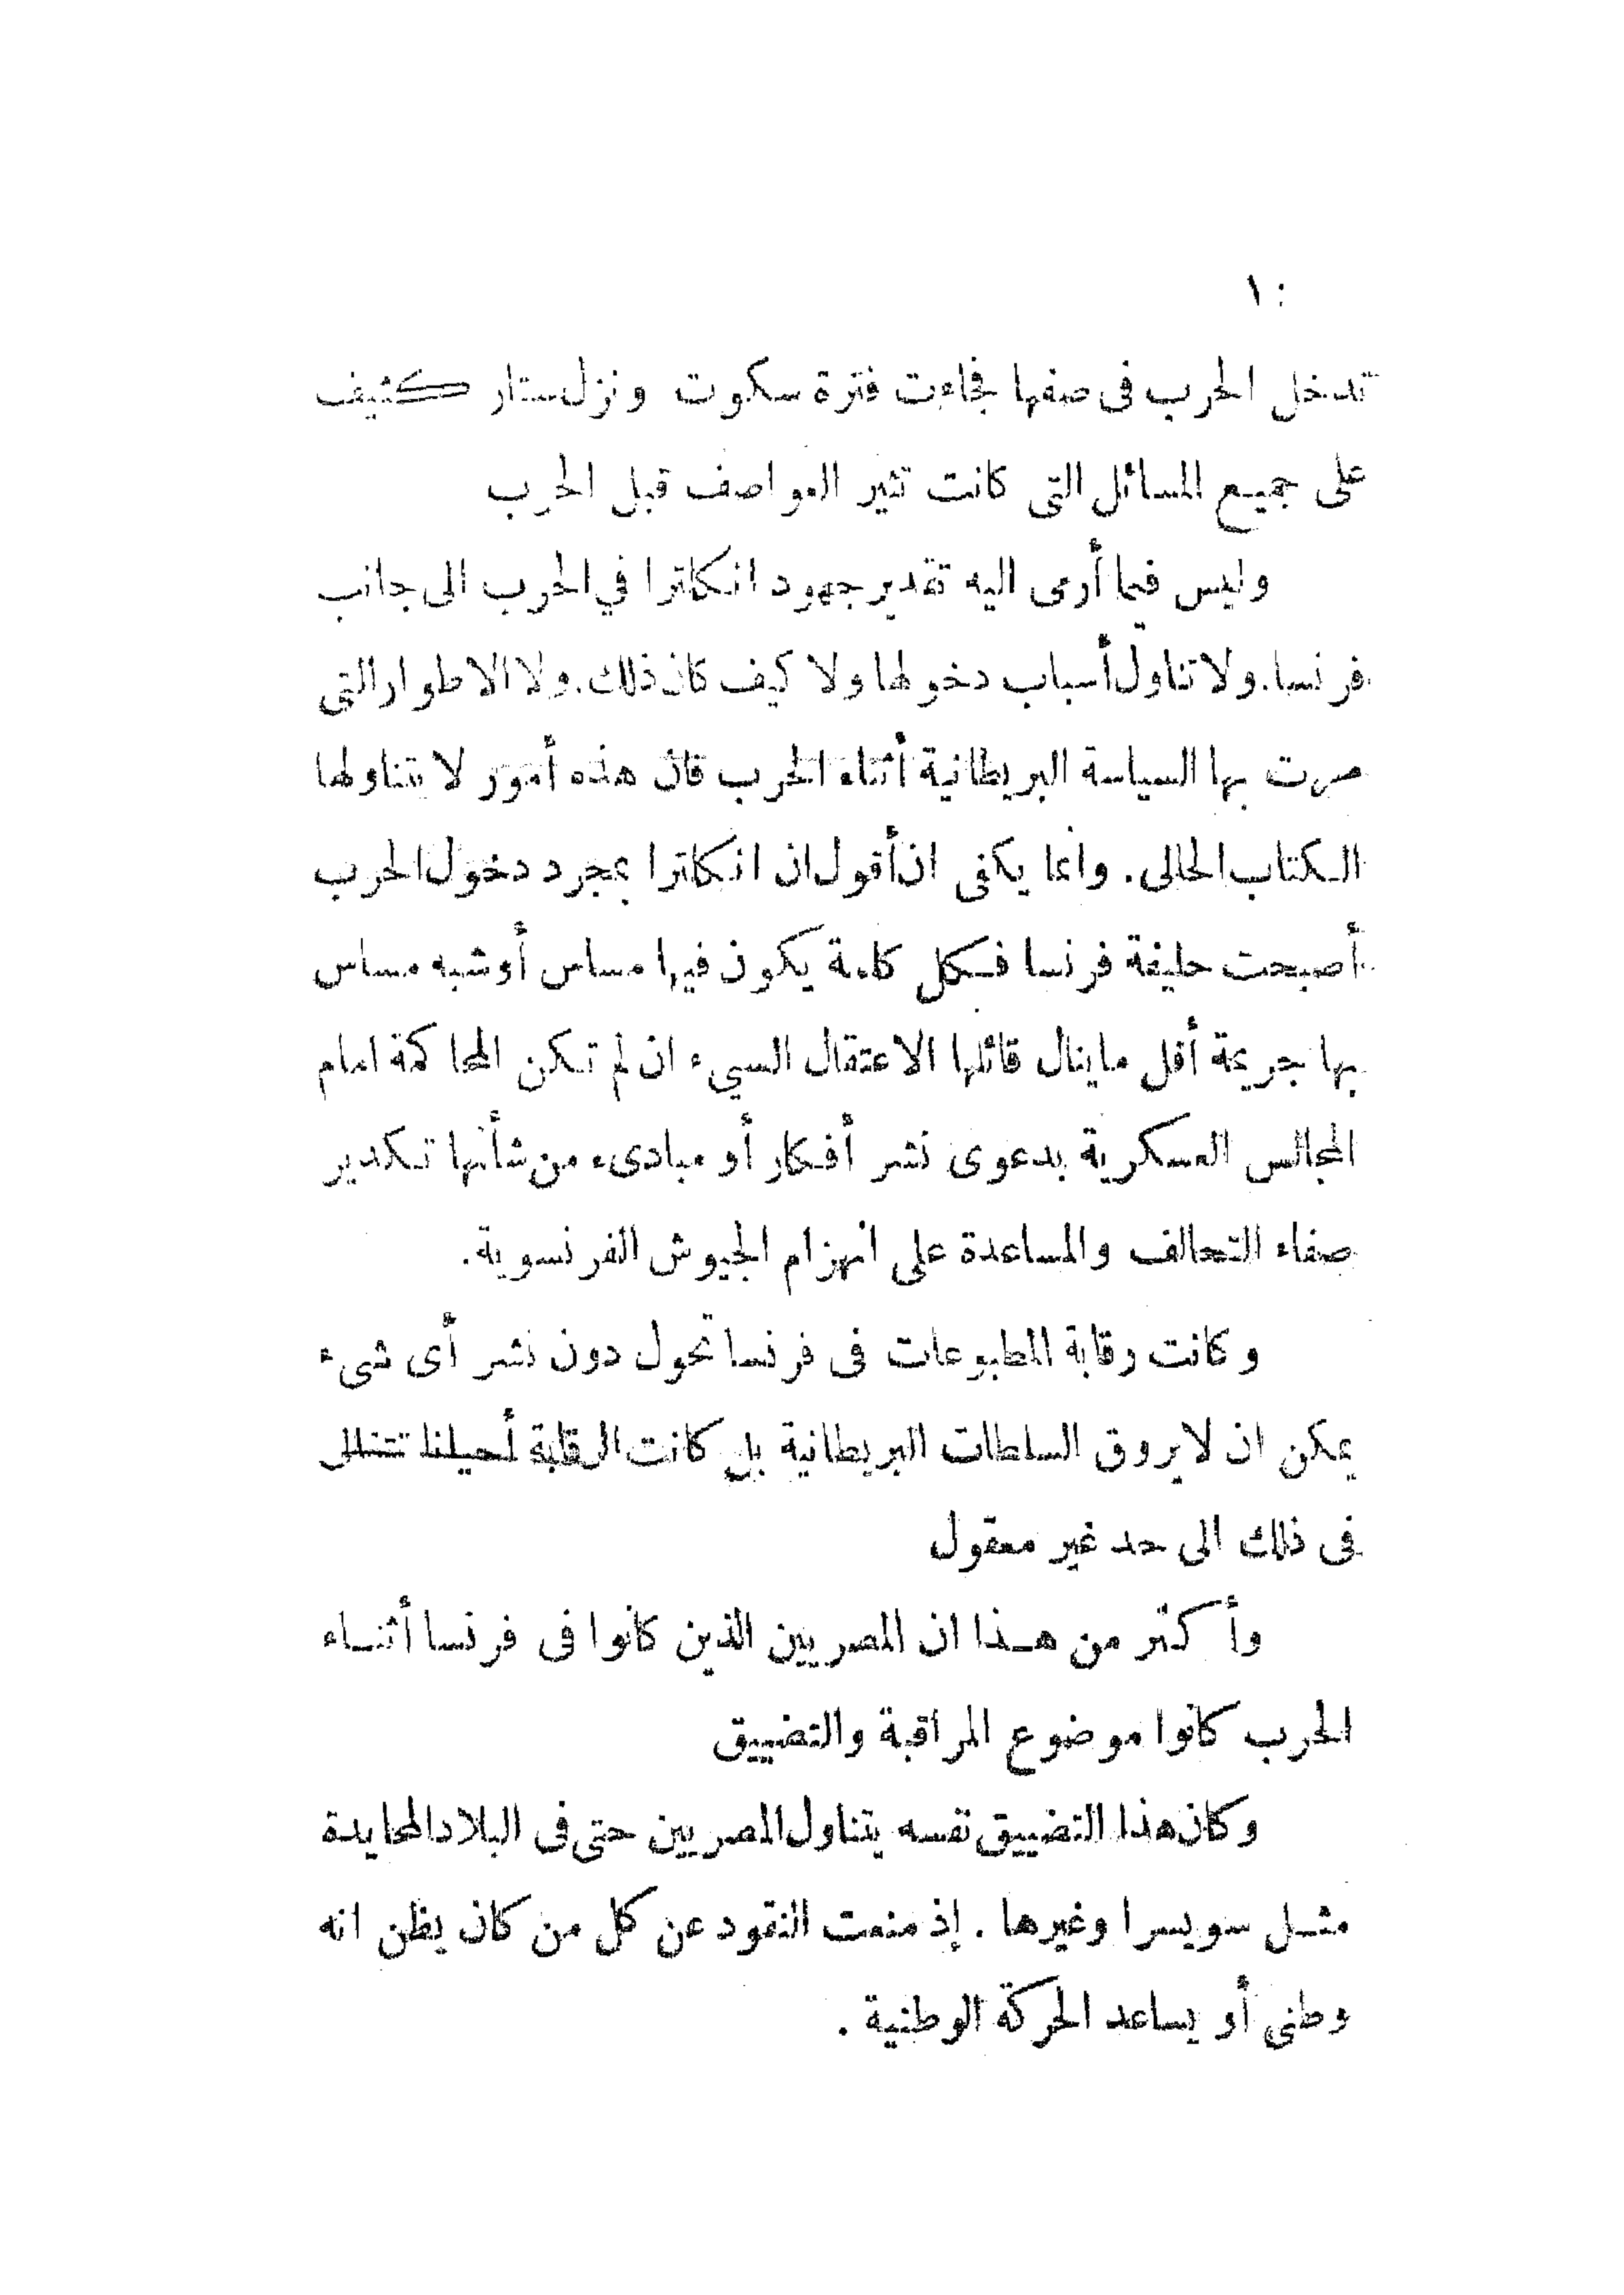 ١ :
تدخل الحرب فى صفها فجاءت فترة سكوت ونزل ستار كثيف
على جميع المسائل التى كانت تثير العواصف قبل الحرب
وليس فيما أرمى اليه تقدير جهود انكلترا في الحرب الى جانب
فرنسا. ولا تناول أسباب دخولها ولا كيف كان ذلك. ولا الاطوار التى
مرت بها السياسة البريطانية أثناء الحرب فان هذه أمور لا يتناولها
الكتاب الحالى. وانما يكفى ان أقول ان انكلترا بمجرد دخول الحرب
أصبحت حليفة فرنسا فكل كلمة يكون فيها مساس أو شبه مساس
بها جريمة أقل ما ينال قائلها الاعتقال السيء ان لم تكن المحاكمة امام
المجالس العسكرية بدعوى نشر أفكار أو مبادىء من شأنها تكدير
صفاء التحالف والمساعدة على انهزام الجيوش الفرنسوية.
وكانت رقابة المطبوعات فى فرنسا تحول دون نشر أى شىء
يمكن ان لا يروق السلطات البريطانية بل كانت الرقابة أحيانا تتغالى
فى ذلك الى حد غير معقول
وأكثر من هذا ان المصريين الذين كانوا فى فرنسا أثناء
الحرب كانوا موضوع المراقبة والتضييق
وكان هذا التضييق نفسه يتناول المصريين حتى فى البلاد المحايدة
مثل سويسرا وغيرها. إذ منعت النقود عن كل من كان يظن انه
وطنى أو يساعد الحركة الوطنية.